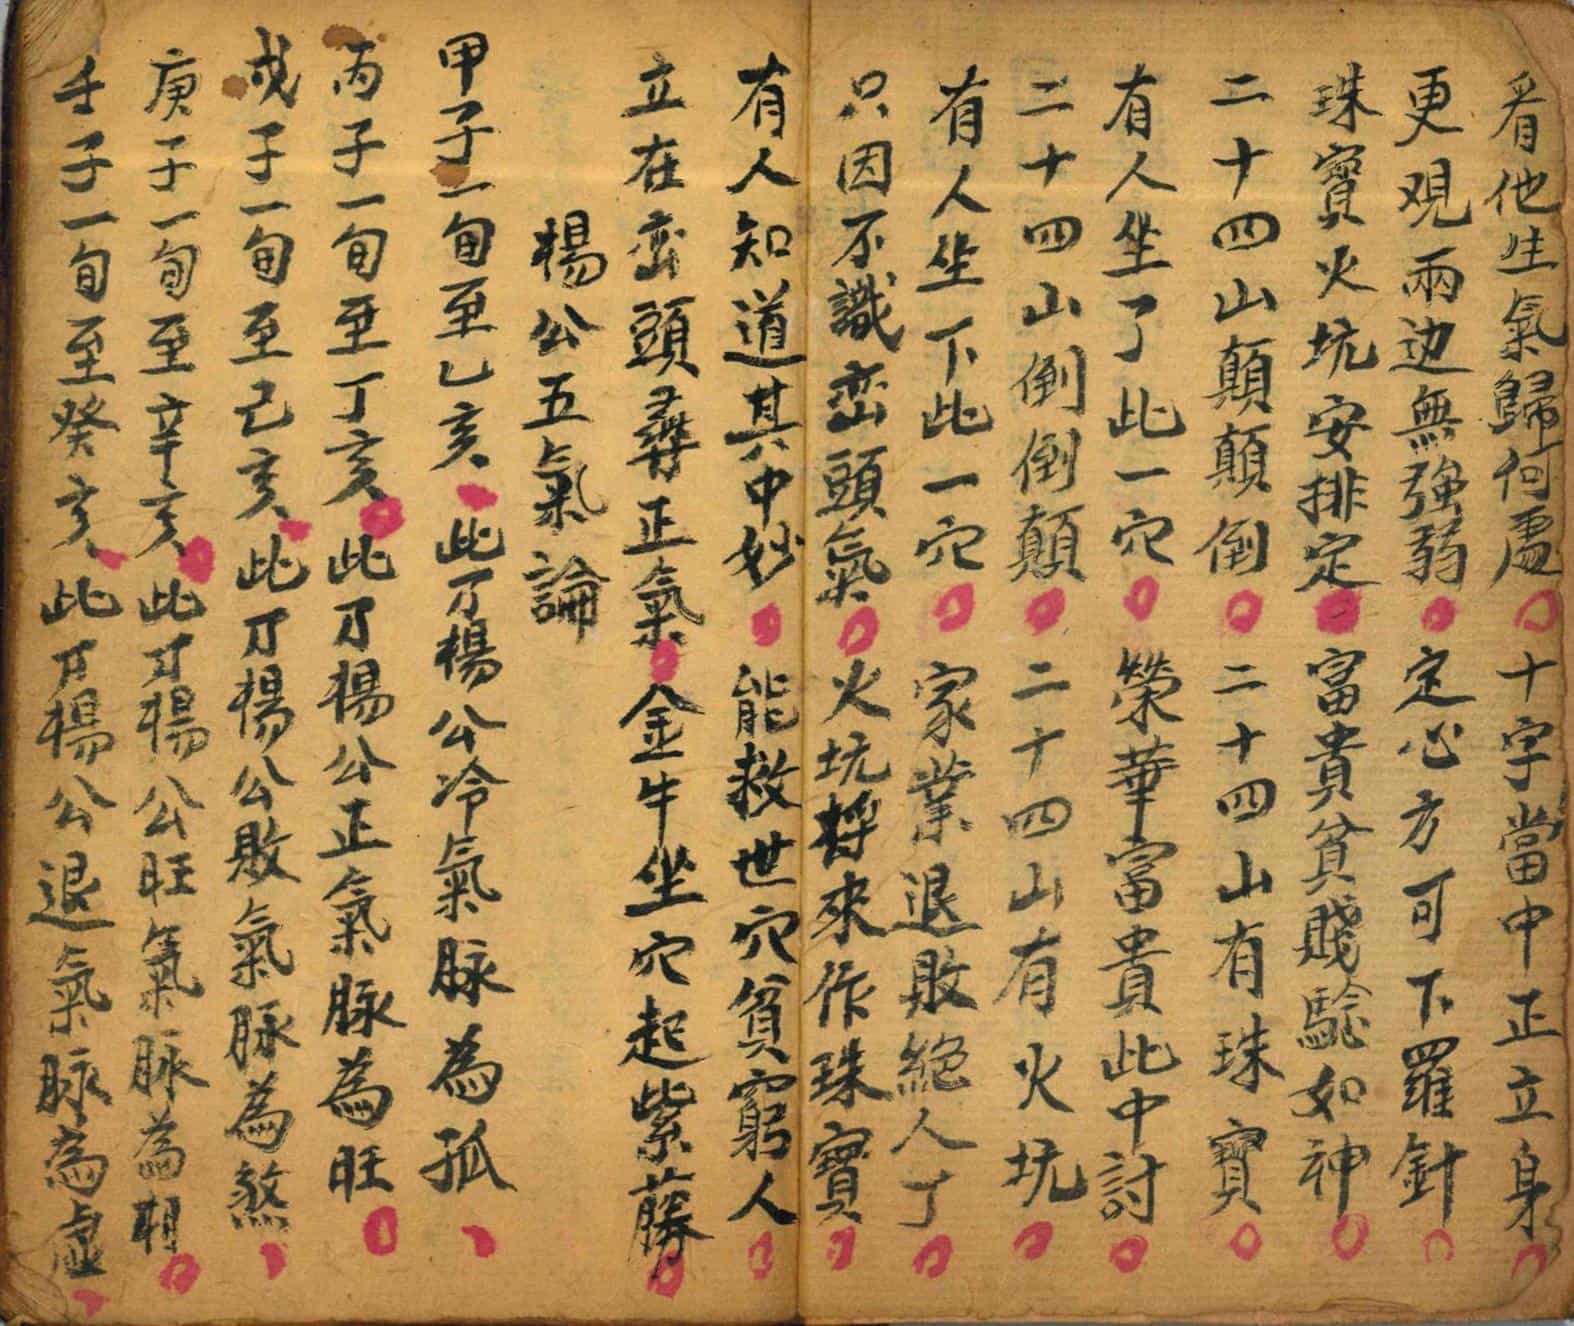 看他生氣歸何處十字當中正立身
更观兩边無強弱定心方可下羅針
珠寳火坑安排定富貴貧賤驗如神
二十四山顛顛倒二十四山有珠寳
有人坐了此一穴榮華富貴此中討
二十四山倒倒顛二十四山有火坑
有人坐下此一穴家業退敗絕人丁
只因不識峦頭氣火坑将來作珠寳
有人知道其中妙能救世穴貧窮人
立在峦頭尋正氣金牛坐穴起紫藤
楊公五氣論
甲子一旬至乙亥此乃楊公冷氣脉為孤
丙子一旬至丁亥此乃楊公正氣脉為旺
戊子一旬至己亥此乃楊公敗氣脉為煞
庚子一旬至辛亥此乃楊公旺氣脉為相
壬子一旬至癸亥此乃楊公退氣脉為虛